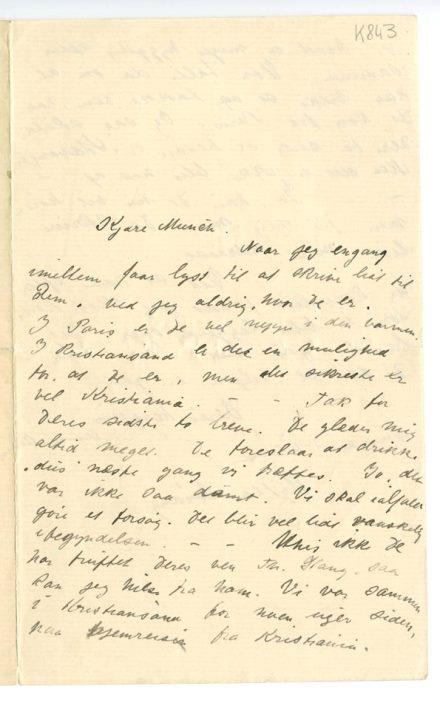 K843
Kjære Munch.
Naar jeg engang
imellem faar lyst til at skrive lidt til
Dem, ved jeg aldrig, hvor De er.
I Paris er De vel neppe i den varmen.
I Kristiansand er det en mulighed
for at De er, men det sikreste er
vel Kristiania. – – Tak for
Deres sidste to breve. De glæder mig
altid meget. De foreslaar at drikke
"dus" næste gang vi træffes. Jo, det
var ikke saa dumt. Vi skal ialfald
gøre et forsøg. Det blir vel lidt vanskelig
i begyndelsen. – – Hvis ikke De
har truffet Deres ven Chr. Haug, saa
kan jeg hilse fra ham. Vi var sammen
i Kristiansand for noen uger siden,
paa hjemreise fra Kristiania.